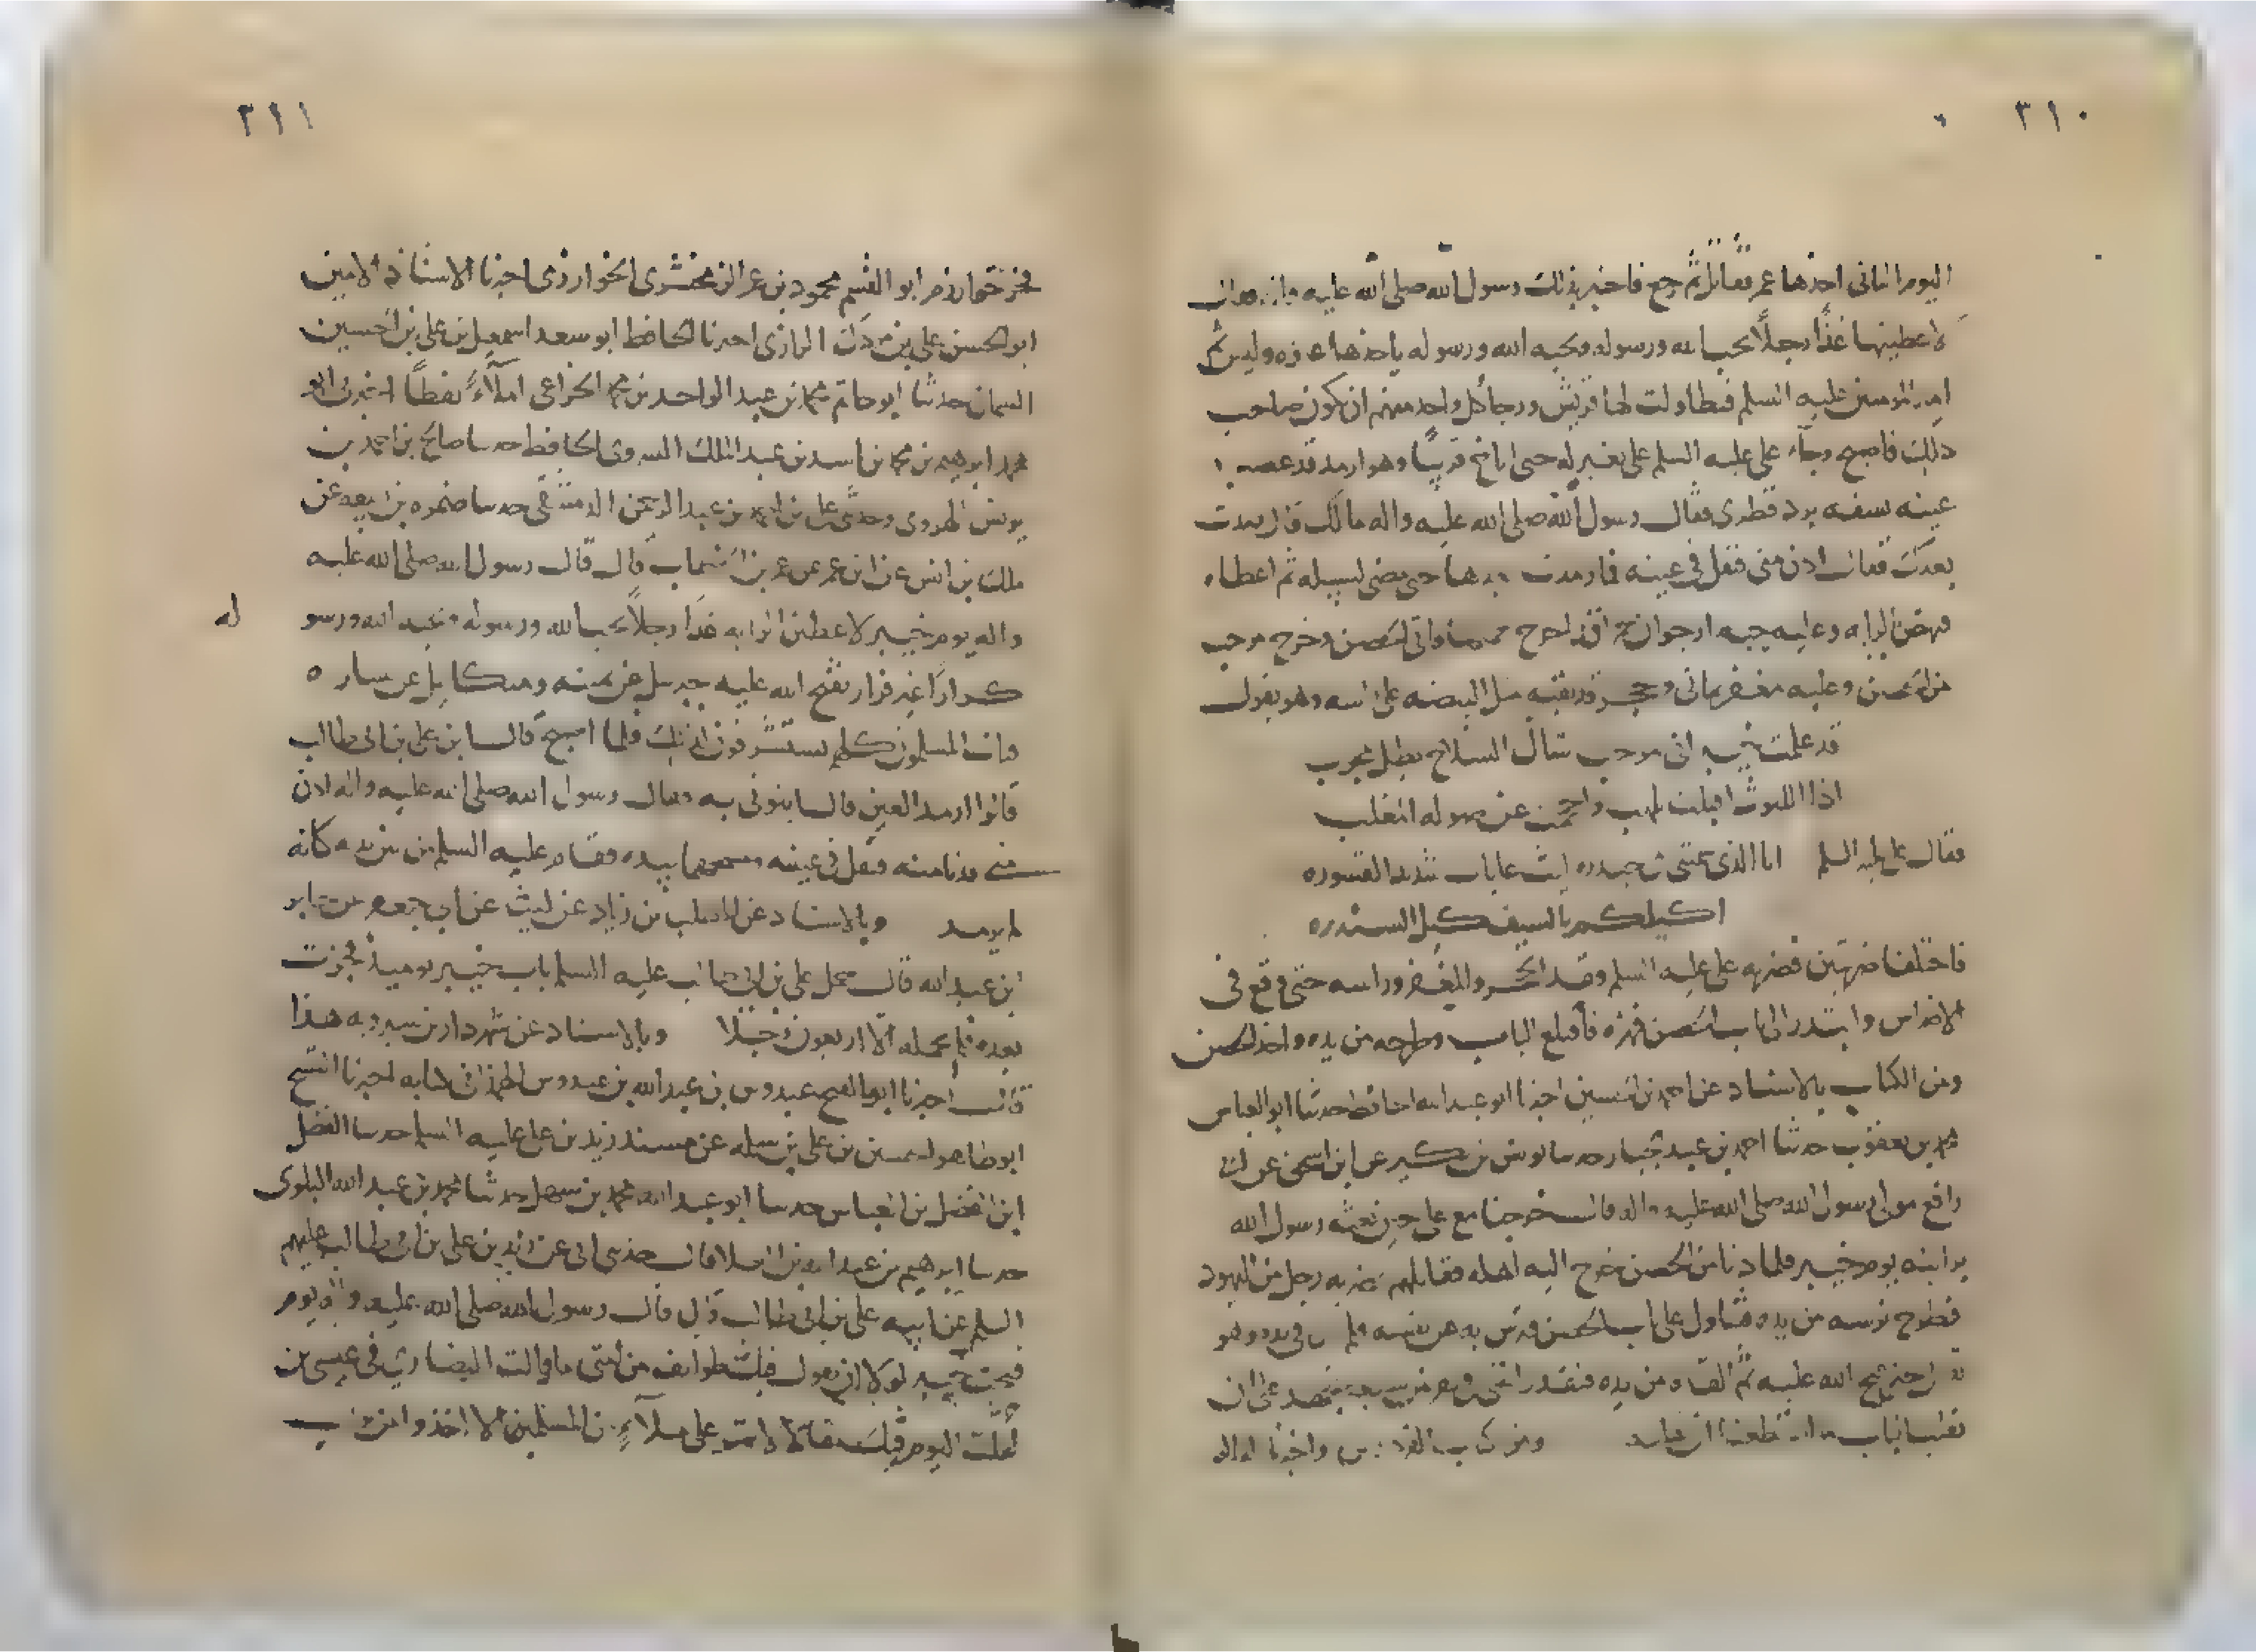 ٣١٠
اليوم الثاني اخذها عمر فقاتل ثم رجع فاخبر بذلك رسول الله صلى الله عليه واله فقال
لاعطينها غدًا رجلًا يحب الله ورسوله ويحبه الله ورسوله ياخذها عنوه وليس ثم
امير المومنين عليه السلم فتطاولت لها قريش ورجا كل واحد منهم ان يكون صاحب
ذلك فاصبح وجاء علي عليه السلم على بعير له حتى اناخ قريبًا وهو ارمد قد عصب
عينه بشقه برد قطري فقال رسول الله صلى الله عليه واله مالك قال رمدت
بعدك فقال ادن مني فتفل في عينه فما رمدت بعدها حتى مضى لسبيله ثم اعطاه
فنهض بالرايه وعليه جبه ارجوان حمرا قد اخرج واتى الحصن وخرج مرحب
من الحصن وعليه مغفر يماني وحجر قد ثقبه مثل البيضه على راسه وهو يقول
قد علمت خيبر اني مرحب شاك السلاح بطل مجرب
اذا الليوث اقبلت تلهب واحجمت عن صوله المغلب
فقال علي عليه السلم انا الذي سمتني امي حيدره ليث غابات شديد القسوره
اكيلكم بالسيف كيل السندره
فاختلفا ضربتين فضربه علي عليه السلم وقد الحجر والمغفر وراسه حتى وقع في
الاضراس وابتدر الى باب الحصن فهزه فاقتلع الباب وطرحه من يده واخذ الحصن
ومن الكتاب بالاسناد عن احمد بن الحسين اخبرنا ابو عبد الله الحافظ حدثنا ابو العباس
محمد بن يعقوب حدثنا احمد بن عبد الجبار حدثنا يونس بن بكير عن ابن اسحق عن ابي
رافع مولى رسول الله صلى الله عليه واله قال خرجنا مع علي حين بعثه رسول الله
برايته يوم خيبر فلما دنا من الحصن خرج اليه اهله فقاتلهم فضربه رجل من اليهود
فطرح ترسه من يده فتناول علي باب الحصن فترس به عن نفسه فلم في يده وهو
حتى فتح الله عليه ثم القاه من يده فلقد رايتني في نفر سبعه نجهد على ان
نقلب الباب فما استطعنا ان نقلبه ومن كتاب واخبرنا
٣١١
فخر خوارزم ابو القسم محمود بن عمر الزمخشري الخوارزمي اخبرنا الاستاذ الامين
ابو الحسن علي بن مردك الرازي اخبرنا الحافظ ابو سعد اسمعيل بن علي بن الحسين
السمان حدثنا ابو حاتم محمد بن عبد الواحد بن محمد الخزاعي املاءً لفظًا
محمد ابرهيم بن محمد بن اسد بن عبد الملك الحافظ حدثنا صالح بن احمد بن
يونس الهروي وحدثني علي بن بن عبد الرحمن الدمشقي حدثنا ضمره بن ربيعه عن
ملك بن انس عن ابن عمر عن عمر بن الخطاب قال قال رسول الله صلى الله عليه
واله يوم خيبر لاعطين الرايه غدًا رجلًا يحب الله ورسوله ويحبه الله ورسو له
كرارًا غير فرار يفتح الله عليه جبرئيل عن يمينه وميكائيل عن يساره
فبات المسلمون كلهم يستشرفون لذلك فلما اصبح قال اين علي بن ابي طالب
قالوا ارمد العين قال ايتوني به فقال رسول الله صلى الله عليه واله ادن
مني فدنا منه فتفل في عينه ومسحهما بيده فقام عليه السلم من بين يديه كانه
لم يرمد وبالاسناد عن المطلب بن زياد عن ليث عن ابي جعفر عن جابر
ابن عبد الله قال حمل علي بن ابي طالب عليه السلم باب خيبر يوميذ فجربت
بعده فلم يحمله الا اربعون رجلا وبالاسناد عن شهردار بن شيرويه هذا
قال اخبرنا ابو الفتح عبدوس بن عبد الله بن عبدوس الهمذاني كتابه اخبرنا الشيخ
ابو طاهر الحسين بن علي بن سلمه عن مسند زيد بن علي عليه السلم حدثنا الفضل
ابن الفضل بن العباس حدثنا ابو عبد الله محمد بن سهل حدثنا محمد بن عبد الله البلوي
حدثنا ابرهيم بن عبد الله بن العلا قال حدثني ابي عن زيد بن علي بن ابي طالب عليهم
السلم عن ابيه علي بن ابي طالب قال قال رسول الله صلى الله عليه واله يوم
فتحت خيبر لولا ان يقول فيك طوايف من امتي ما قالت النصارى في عيسى بن
لقلت اليوم فيك مقالا لا تمر على ملاءٍ من المسلمين الا اخذوا من تراب